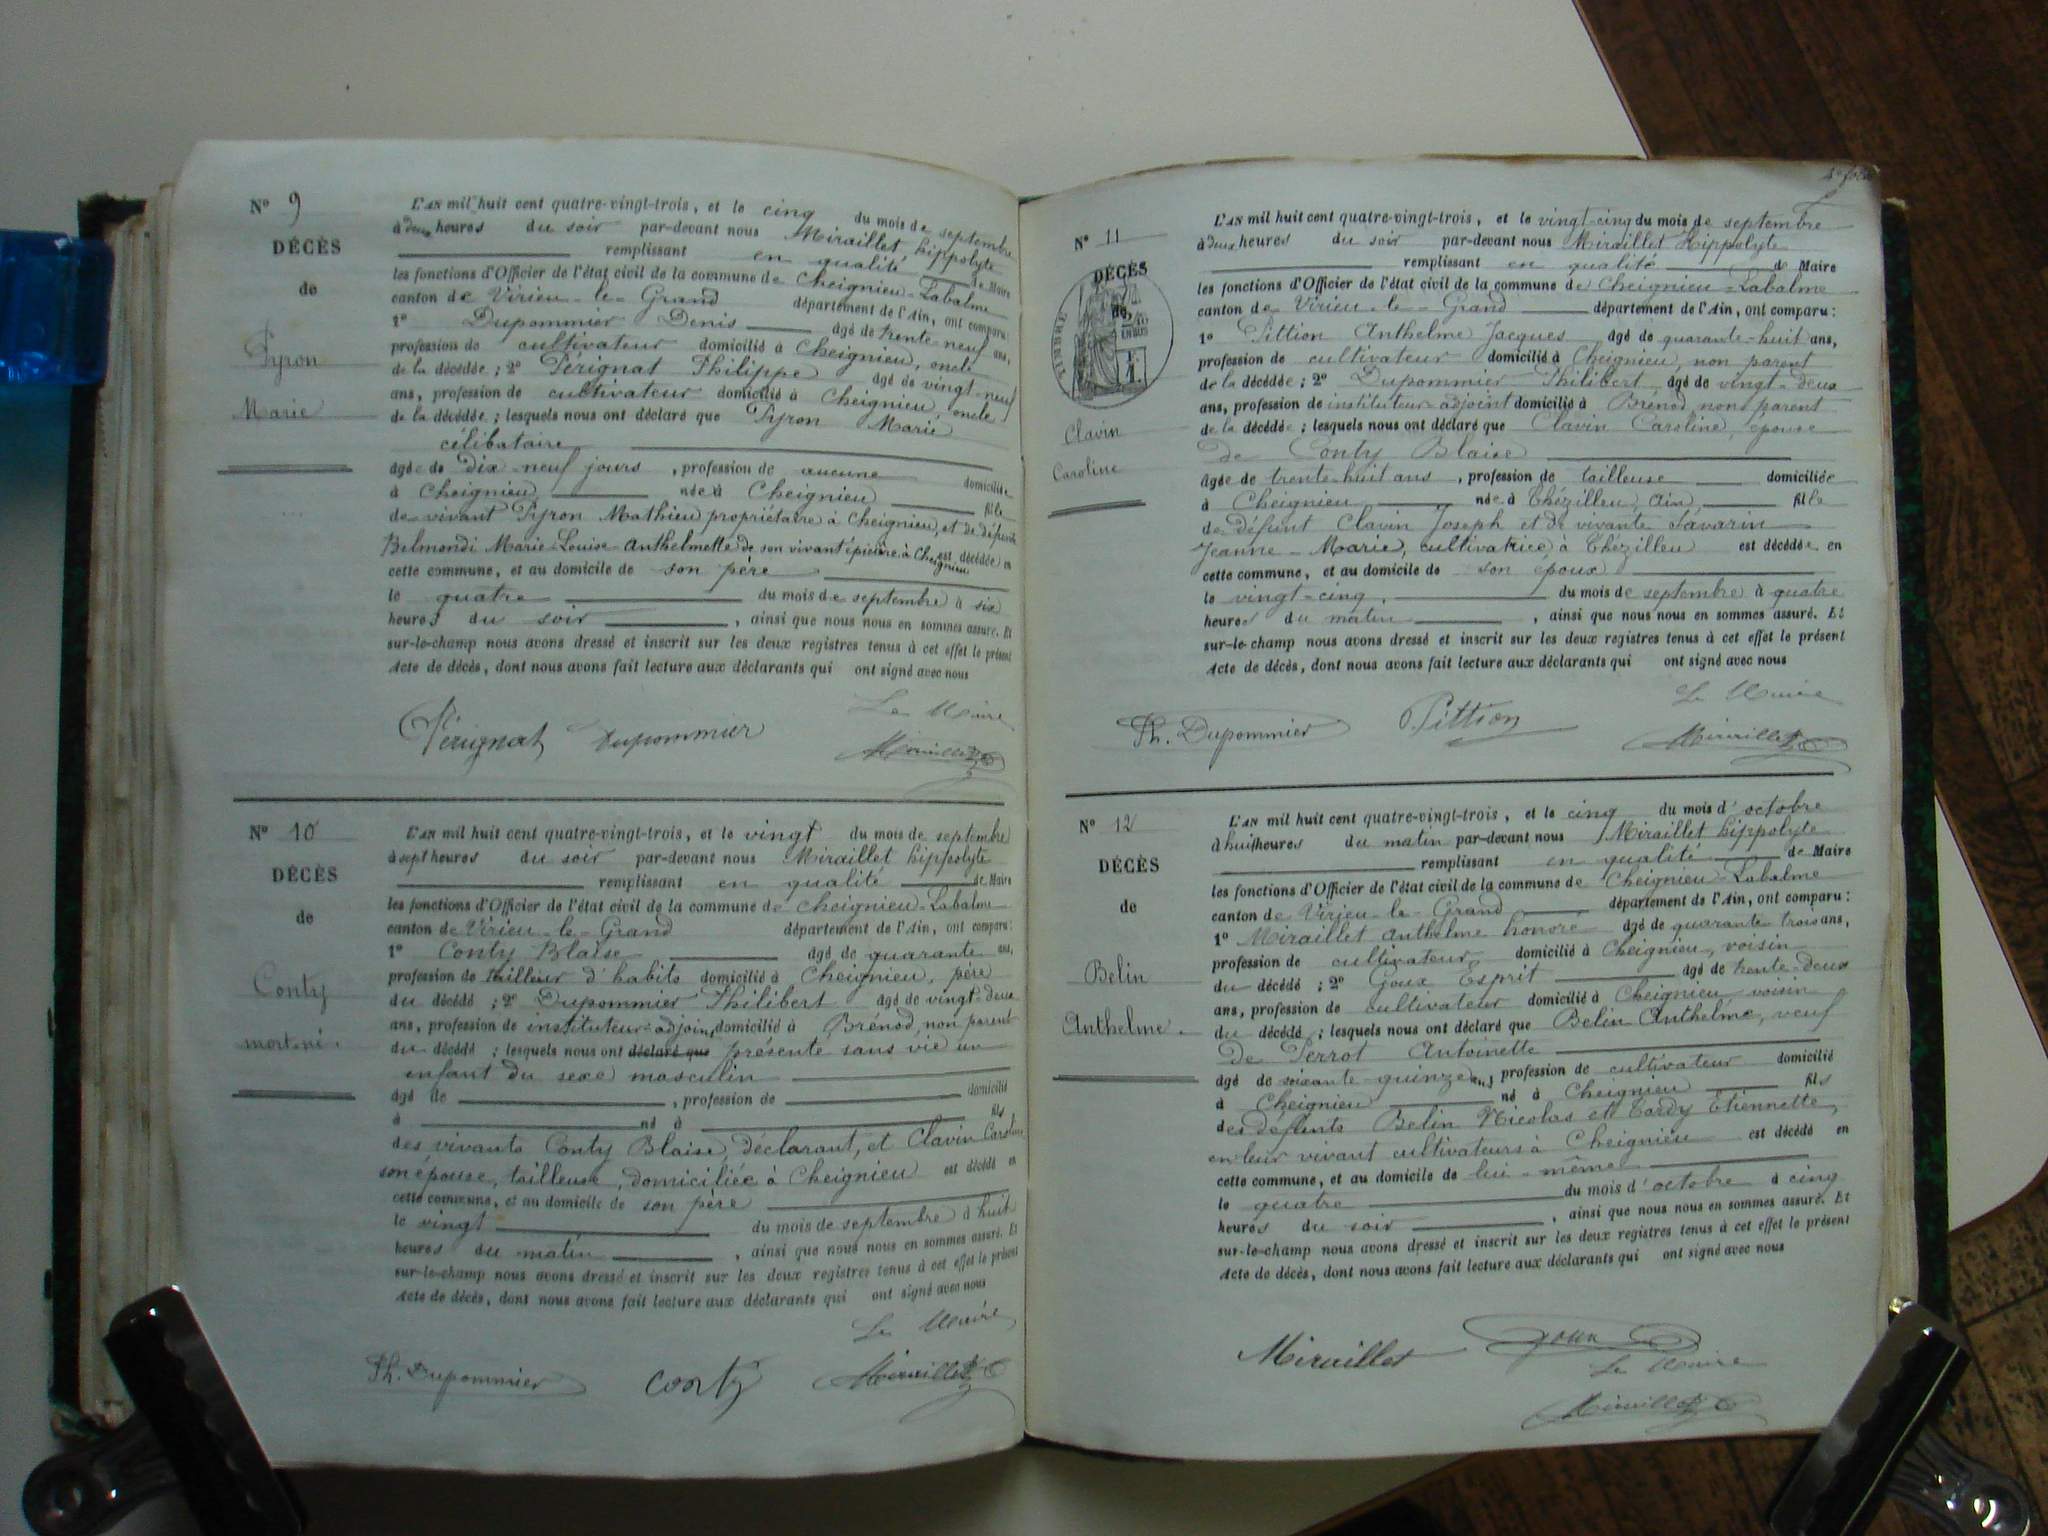 N° 9
DÉCÈS
de
Pyron
Marie
L'AN mil huit cent quatre-vingt-trois, et le cinq du mois de septembre
à deux heures du soir par-devant nous Miraillet hippolyte
remplissant en qualité de Maire
les fonctions d'Officier de l'état civil de la commune de Cheignieu-Labalme
canton de Virieu-le-Grand département de l'Ain, ont comparu:
1° Dupommier Denis âgé de trente-neuf ans,
profession de cultivateur domicilié à Cheignieu, oncle
de la décédée; 2° Pérignat Philippe âgé de vingt-neuf
ans, profession de cultivateur domicilié à Cheignieu, oncle
de la décédée; lesquels nous ont déclaré que Pyron Marie
célibataire
âgée de dix-neuf jours, profession de aucune domiciliée
à Cheignieu née à Cheignieu fille
de vivant Pyron Mathieu propriétaire à Cheignieu, et de défunte
Belmondi Marie-Louise Anthelmette de son vivant épicière à Cheignieu est décédée en
cette commune, et au domicile de son père
le quatre du mois de septembre à six
heures du soir, ainsi que nous nous en sommes assuré. Et
sur-le-champ nous avons dressé et inscrit sur les deux registres tenus à cet effet le présent
Acte de décès, dont nous avons fait lecture aux déclarants qui ont signé avec nous
Le Maire
Pérignat Dupommier Miraillet
N° 10
DÉCÈS
de
Conty
mort-né.
L'AN mil huit cent quatre-vingt-trois, et le vingt du mois de septembre
à sept heures du soir par-devant nous Miraillet hippolyte
remplissant en qualité de Maire
les fonctions d'Officier de l'état civil de la commune de Cheignieu-Labalme
canton de Virieu-le-Grand département de l'Ain, ont comparu:
1° Conty Blaise âgé de quarante ans,
profession de tailleur d'habits domicilié à Cheignieu, père
du décédé; 2° Dupommier Philibert âgé de vingt-deux
ans, profession de instituteur-adjoint domicilié à Brénod, non parent
du décédé; lesquels nous ont déclaré que présenté sans vie un
enfant du sexe masculin
âgé de, profession de domicilié
à né à fils
des vivants Conty Blaise, déclarant, et Clavin Caroline
son épouse, tailleuse, domiciliée à Cheignieu est décédé en
cette commune, et au domicile de son père
le vingt du mois de septembre à huit
heures du matin, ainsi que nous nous en sommes assuré. Et
sur-le-champ nous avons dressé et inscrit sur les deux registres tenus à cet effet le présent
Acte de décès, dont nous avons fait lecture aux déclarants qui ont signé avec nous
Le Maire
Ph. Dupommier Conty Miraillet
N° 11
DÉCÈS
de
TIMBRE
Clavin
Caroline
L'AN mil huit cent quatre-vingt-trois, et le vingt-cinq du mois de septembre
à deux heures du soir par-devant nous Miraillet Hippolyte
remplissant en qualité de Maire
les fonctions d'Officier de l'état civil de la commune de Cheignieu-Labalme
canton de Virieu-le-Grand département de l'Ain, ont comparu:
1° Pittion Anthelme Jacques âgé de quarante-huit ans,
profession de cultivateur domicilié à Cheignieu, non parent
de la décédée; 2° Dupommier Philibert, âgé de vingt-deux
ans, profession de instituteur-adjoint domicilié à Brénod non parent
de la décédée; lesquels nous ont déclaré que Clavin Caroline, épouse
de Conty Blaise
âgée de trente-huit ans, profession de tailleuse domiciliée
à Cheignieu, née à Thézillieu, Ain, fille
de défunt Clavin Joseph et de vivante Savarin
Jeanne-Marie, cultivatrice à Thézillieu est décédée en
cette commune, et au domicile de son époux
le vingt-cinq du mois de septembre à quatre
heures du matin, ainsi que nous nous en sommes assuré. Et
sur-le-champ nous avons dressé et inscrit sur les deux registres tenus à cet effet le présent
Acte de décès, dont nous avons fait lecture aux déclarants qui ont signé avec nous
Le Maire
Ph. Dupommier Pittion Miraillet
N° 12
DÉCÈS
de
Belin
Anthelme.
L'AN mil huit cent quatre-vingt-trois, et le cinq du mois d'octobre
à huit heures du matin par-devant nous Miraillet hippolyte
remplissant en qualité de Maire
les fonctions d'Officier de l'état civil de la commune de Cheignieu-Labalme
canton de Virieu-le-Grand département de l'Ain, ont comparu:
1° Miraillet Anthelme honoré âgé de quarante trois ans,
profession de cultivateur, domicilié à Cheignieu, voisin
du décédé; 2° Goux Esprit âgé de trente-deux
ans, profession de cultivateur domicilié à Cheignieu voisin
du décédé; lesquels nous ont déclaré que Belin Anthelme, veuf
de Perrot Antoinette
âgé de soixante-quinze ans, profession de cultivateur domicilié
à Cheignieu né à Cheignieu fils
des défunts Belin Nicolas et Tardy Etiennette,
en leur vivant cultivateurs à Cheignieu est décédé en
cette commune, et au domicile de lui-même
le quatre du mois d'octobre à cinq
heures du soir, ainsi que nous nous en sommes assuré. Et
sur-le-champ nous avons dressé et inscrit sur les deux registres tenus à cet effet le présent
Acte de décès, dont nous avons fait lecture aux déclarants qui ont signé avec nous
Miraillet Goux
Le Maire
Miraillet